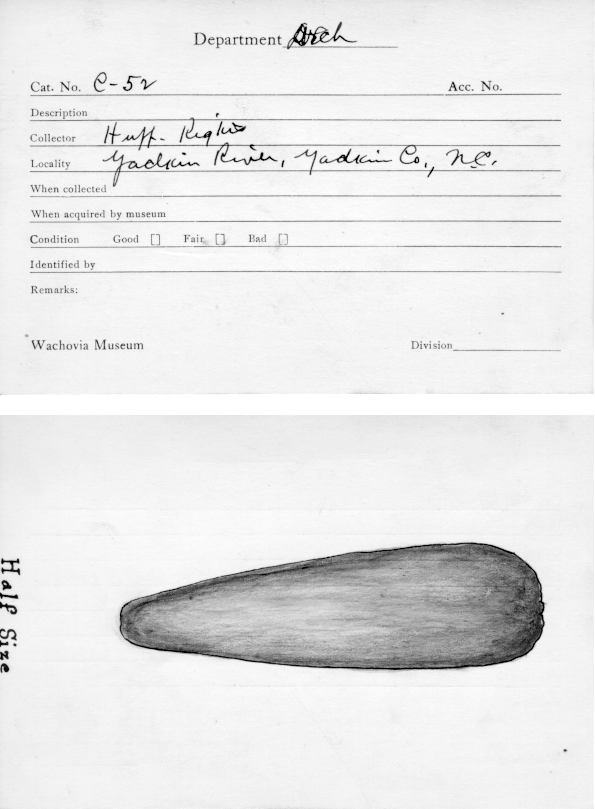 Department Arch
Cat. No. C-52 Acc. No.
Description
Collector Huff-
Locality Yadkin River, Yadkin Co., N.C.
When collected
When acquired by museum
Condition Good [] Fair [] Bad []
Identified by
Remarks:
Wachovia Museum Division
Half Size